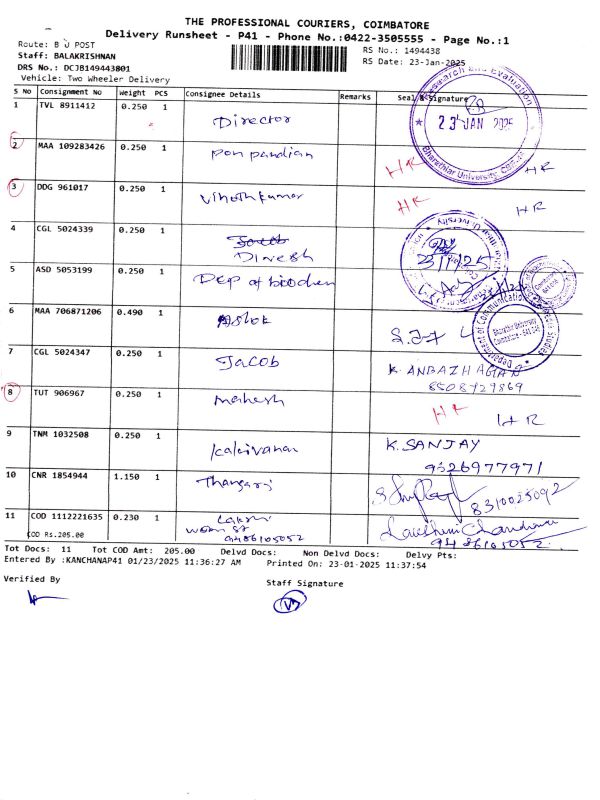 THE PROFESSIONAL COURIERS, COIMBATORE
Delivery Runsheet - P41 - Phone No.:0422-3505555 - Page No.:1
Route: B U POST
RS No.: 1494438
Staff: BALAKRISHNAN
RS Date: 23-Jan-2025
DRS No.: DCJB149443801
Vehicle: Two Wheeler Delivery
S No Consignment No Weight PCS Consignee Details Remarks Seal & Signature
1 TVL 8911412 0.250 1 Director
Research and Evaluation
★ 23 JAN 2025
Bharathiar University, Coimb
2 MAA 109283426 0.250 1 pon pandian HR HR
3 DDG 961017 0.250 1 Vinothkumar HR HR
4 CGL 5024339 0.250 1 Jacob
Dinesh
23/1/25
5 ASD 5053199 0.250 1 Dep of biochem
6 MAA 706871206 0.490 1 Ashok
Department of Communication
Bharathiar University
Coimbatore - 641 046
7 CGL 5024347 0.250 1 Jacob K. ANBAZHAGAN
8508727869
8 TUT 906967 0.250 1 mahesh HR HR
9 TNM 1032508 0.250 1 kalaivanan K. SANJAY
9526977971
10 CNR 1854944 1.150 1 Thangaraj 8310025092
11 COD 1112221635 0.230 1 Laxmi
COD Rs.205.00 women st
9486105052
Lakshmi Chandran
9486165052
Tot Docs: 11 Tot COD Amt: 205.00 Delvd Docs: Non Delvd Docs: Delvy Pts:
Entered By :KANCHANAP41 01/23/2025 11:36:27 AM Printed On: 23-01-2025 11:37:54
Verified By Staff Signature